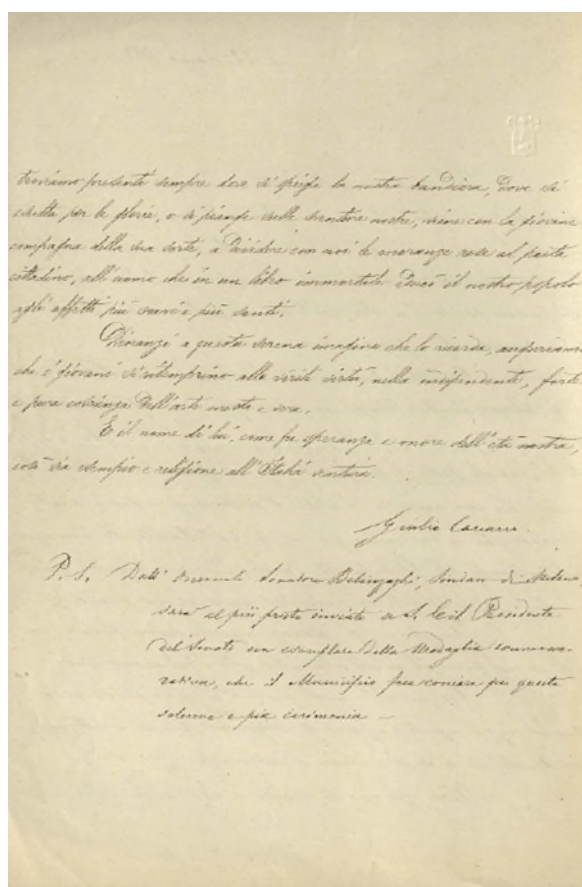 troviamo presente sempre dove si spiega la nostra bandiera, dove si
esulta per le glorie, o si piange sulle sventure nostre, viene con la giovine
compagna della sua sorte, a dividere con noi le onoranze rese al poeta
cittadino, all'uomo che in un libro immortale educò il nostro popolo
agli affetti più soavi e più santi.
Dinanzi a questa serena imagine che lo ricorda, auguriamo
che i giovani si ritemprino alle virili virtù, nella indipendente, forte
e pura coscienza dell'arte onesta e vera.
E il nome di lui, come fu speranza e onore dell'età nostra,
così sia esempio e religione all'Italia ventura.
Giulio Carcano
P. S. Dall' Senatore Belinzaghi, Sindaco di Milano,
sarà al più presto inviato a S. Ecc. il Presidente
del Senato un esemplare della Medaglia commemo-
rativa, che il Municipio fece coniare per questa
solenne e pia cerimonia —